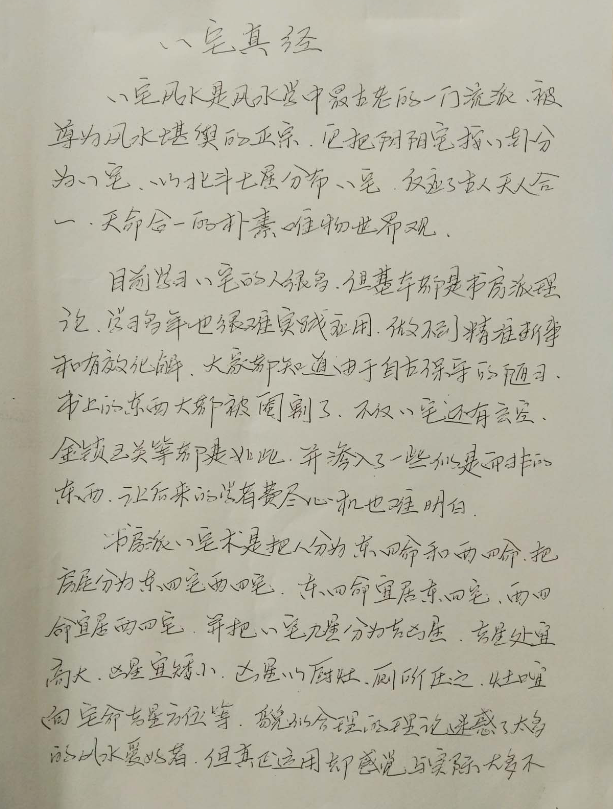 八宅真经
八宅风水是风水学中最古老的一门流派、被
尊为风水堪舆的正宗、它把阴阳宅按八卦分
为八宅、以北斗七星分布八宅、反应了古人天人合
一、天命合一的朴素唯物世界观、
目前学习八宅的人很多、但基本都是书房派理
论、学习多年也很难实践应用、做不到精准断事
和有效化解、大家都知道由于自古保守的陋习、
书上的东西大都被阉割了、不仅八宅还有玄空、
金锁玉关等都是如此、并渗入了一些似是而非的
东西、让后来的学者费尽心机也难明白、
书房派八宅术是把人分为东四命和西四命、把
房屋分为东四宅西四宅、东四命宜居东四宅、西四
命宜居西四宅、并把八宅九星分为吉凶星、吉星处宜
高大、凶星宜矮小、凶星以厨灶、厕所压之、灶口宜
向宅命吉星方位等、貌似合理的理论迷惑了大多
的风水爱好者、但真正运用却感觉与实际大多不